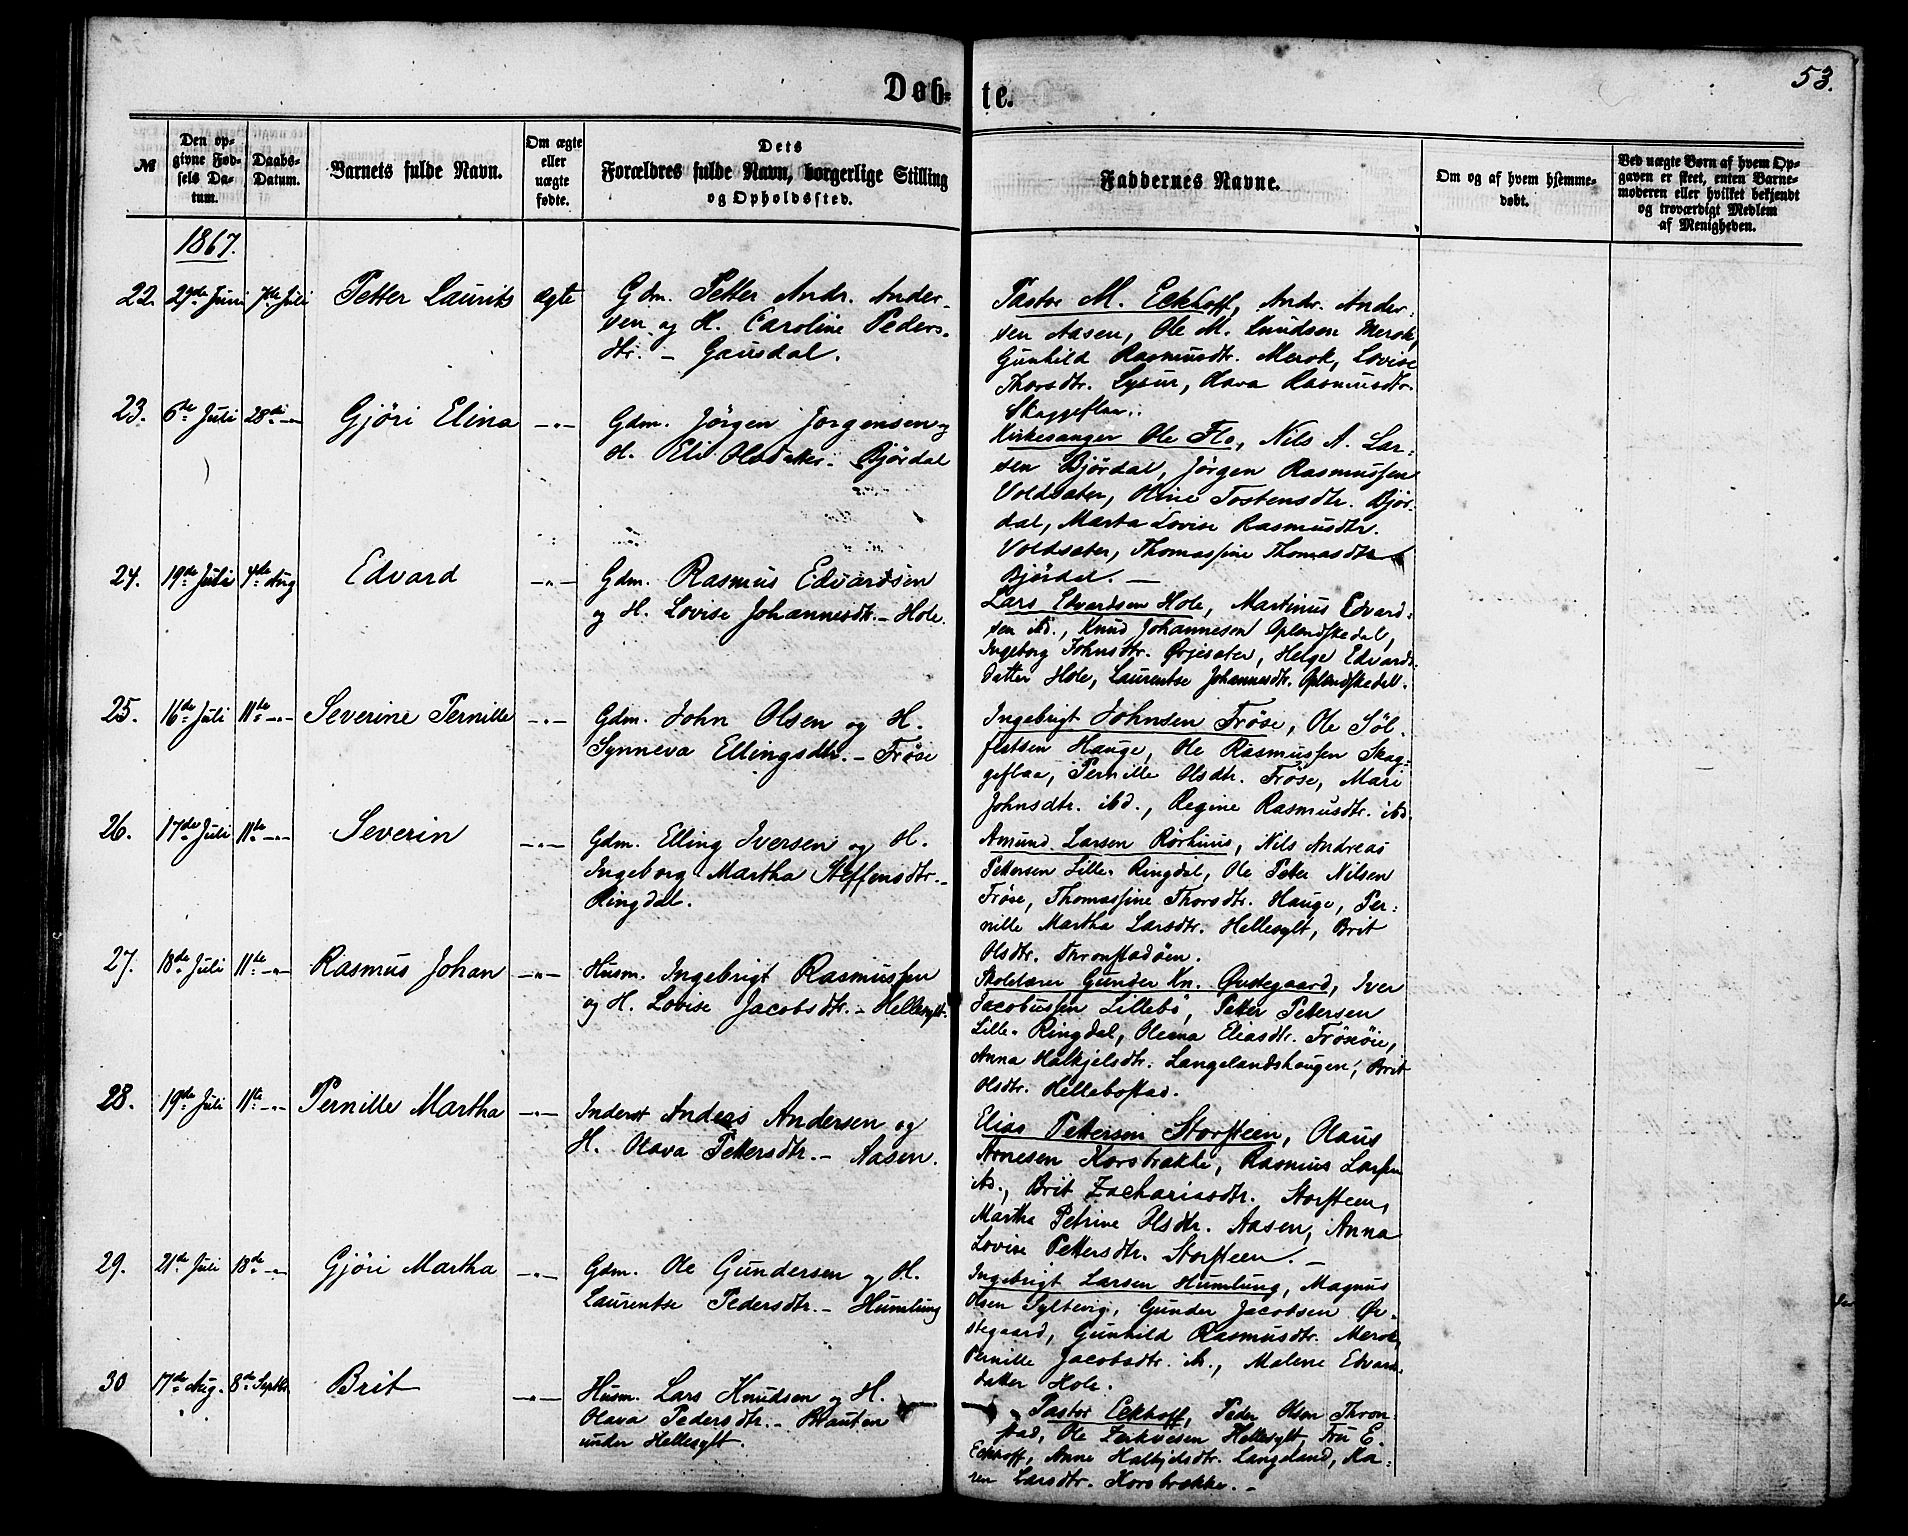 53.
Døb-te.
№
Den op-
givne Fød-
sels Da-
tum.
Daabs-
Datum.
Barnets fulde Navn.
Om ægte
eller
uægte
fødte.
Dets
Forældres fulde Navn, borgerlige Stilling
og Opholdssted.
Faddernes Navne.
Om og af hvem hjemme-
døbt.
Ved uægte Børn af hvem Op-
gaven er skeet, enten Barne-
moderen eller hvilket bekjendt
og troværdigt Medlem
af Menigheden.
1867.
22. 29de Juni 7de Juli Petter Laurits ægte
Gdm. Petter Andr. Ander-
sen og H. Caroline Peders-
dtr. - Gausdal.
Pastor M. Eckhoff, Andr. Ander-
sen Aasen, Ole M. Knudsen Merok,
Gunhild Rasmusdtr. Merok, Lovise
Thorsdtr. Lysur, Olava Rasmusdtr.
Skaggeflaa.
23. 6te Juli 28de -"- Gjöri Elina -"-
Gdm. Jörgen Jorgensen og
H. Eli Olsdatter. - Björdal
Kirkesanger Ole Flo, Nils A. Lar-
sen Björdal, Jörgen Rasmussen
Voldsater, Oline Tostensdtr. Björ-
dal, Marta Lovise Rasmusdtr.
Voldsater, Thomassine Thomasdtr.
Björdal. -
24. 19de Juli 4de Aug Edvard -"-
Gdm. Rasmus Edvardsen
og H. Lovise Johannesdtr. - Hole.
Lars Edvardsen Hole, Martinus Edvard-
sen ibd., Knud Johannesen Oplendskedal,
Ingeborg Johnsdtr. Ørjesater, Helge Edvards-
datter Hole, Laurentse Johannesdtr. Oplendskedal.
25. 16de Juli 11te -"- Severine Pernille -"-
Gdm. John Olsen og H.
Synneva Ellingsdtr. - Fröse
Ingebrigt Johnsen Fröse, Ole Söl-
festsen Hauge, Ole Rasmussen Skag-
geflaa, Pernille Olsdtr. Fröse, Mari
Johnsdtr. ibd., Regine Rasmusdtr. ibd.
26. 17de Juli 11te -"- Severin -"-
Gdm. Elling Iversen og H.
Ingeborg Martha Steffensdtr. -
Ringdal.
Amund Larsen Rørhuus, Nils Andreas
Pettersen Lille-Ringdal, Ole Peter Nilsen
Fröse, Thomassine Thorsdtr. Hauge, Per-
nille Martha Larsdtr. Hellesylt, Brit
Olsdtr. Thronstadöen.
27. 18de Juli 11te -"- Rasmus Johan -"-
Husm. Ingebrigt Rasmussen
og H. Lovise Jacobsdtr. - Hellesylt.
Skolelærer Gunder Kn. Øvstegaard, Iver
Jacobussen Lillebö, Petter Pettersen
Lille-Ringdal, Oleana Eliasdtr. Frösöie,
Anna Halkjelsdtr. Langelandshaugen, Brit
Olsdtr. Hellebostad.
28. 19de Juli 11te -"- Pernille Martha -"-
Inderst Anders Andersen og
H. Olava Pettersdtr. - Aasen.
Elias Pettersen Storsteen, Olaus
Arnesen Korsbrække, Rasmus Larsen
ib., Brit Zachariasdtr. Storsteen,
Martha Petrine Olsdtr. Aasen, Anna
Lovise Pettersdtr. Storsteen. -
29. 21de Juli 18de -"- Gjöri Martha -"-
Gdm. Ole Gundersen og H.
Laurentse Pedersdtr. - Humlung
Ingebrigt Larsen Humlung, Magnus
Olsen Syltevig, Gunder Jacobsen Øv-
stegaard, Gunhild Rasmusdtr. Merok,
Pernille Jacobsdtr. ib., Malene Edvards-
datter Hole.
30 17de Aug. 8de Septbr. Brit -"-
Husm. Lars Knudsen og H.
Olava Pedersdtr. - Brauten
under Hellesylt.
Pastor Eckhoff, Peder Olsen Thron-
stad, Ole Zerkvesen Hellesylt Fru E.
Eckhoff, Anne Halkjelsdtr. Langeland, Ka-
ren Larsdtr. Korsbrække. -